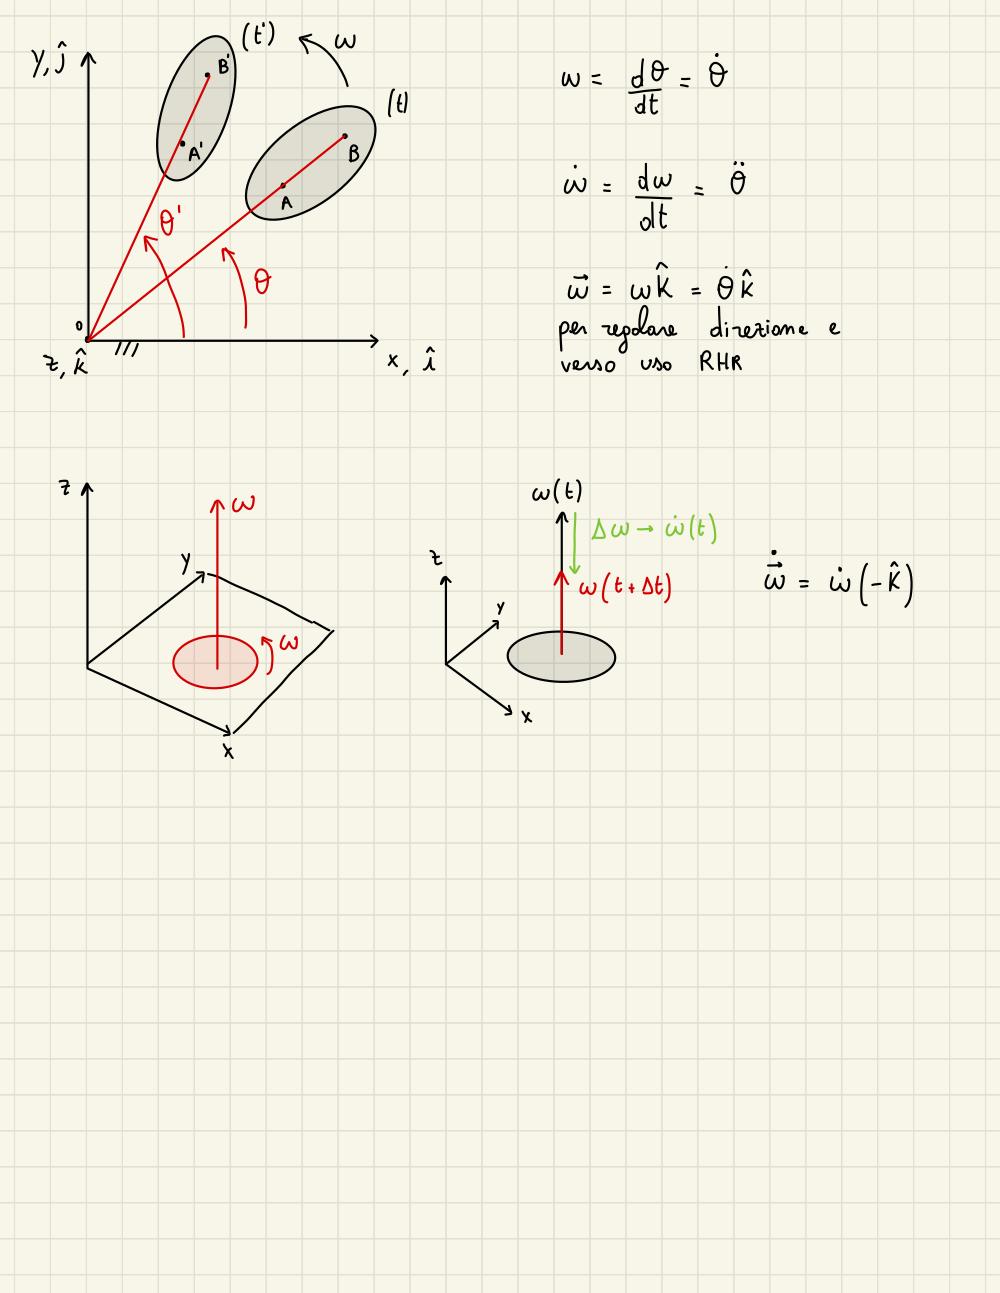 y, ĵ
(t')
ω
B'
A'
(t)
B
A
θ'
θ
0
z, k̂
x, î
ω = dθ/dt = θ̇
ω̇ = dω/dt = θ̈
ω⃗ = ω k̂ = θ̇ k̂
per regolare direzione e
verso uso RHR
z
ω
y
ω
x
ω(t)
Δω → ω̇(t)
z
ω(t + Δt)
y
x
ω⃗̇ = ω̇ (-k̂)